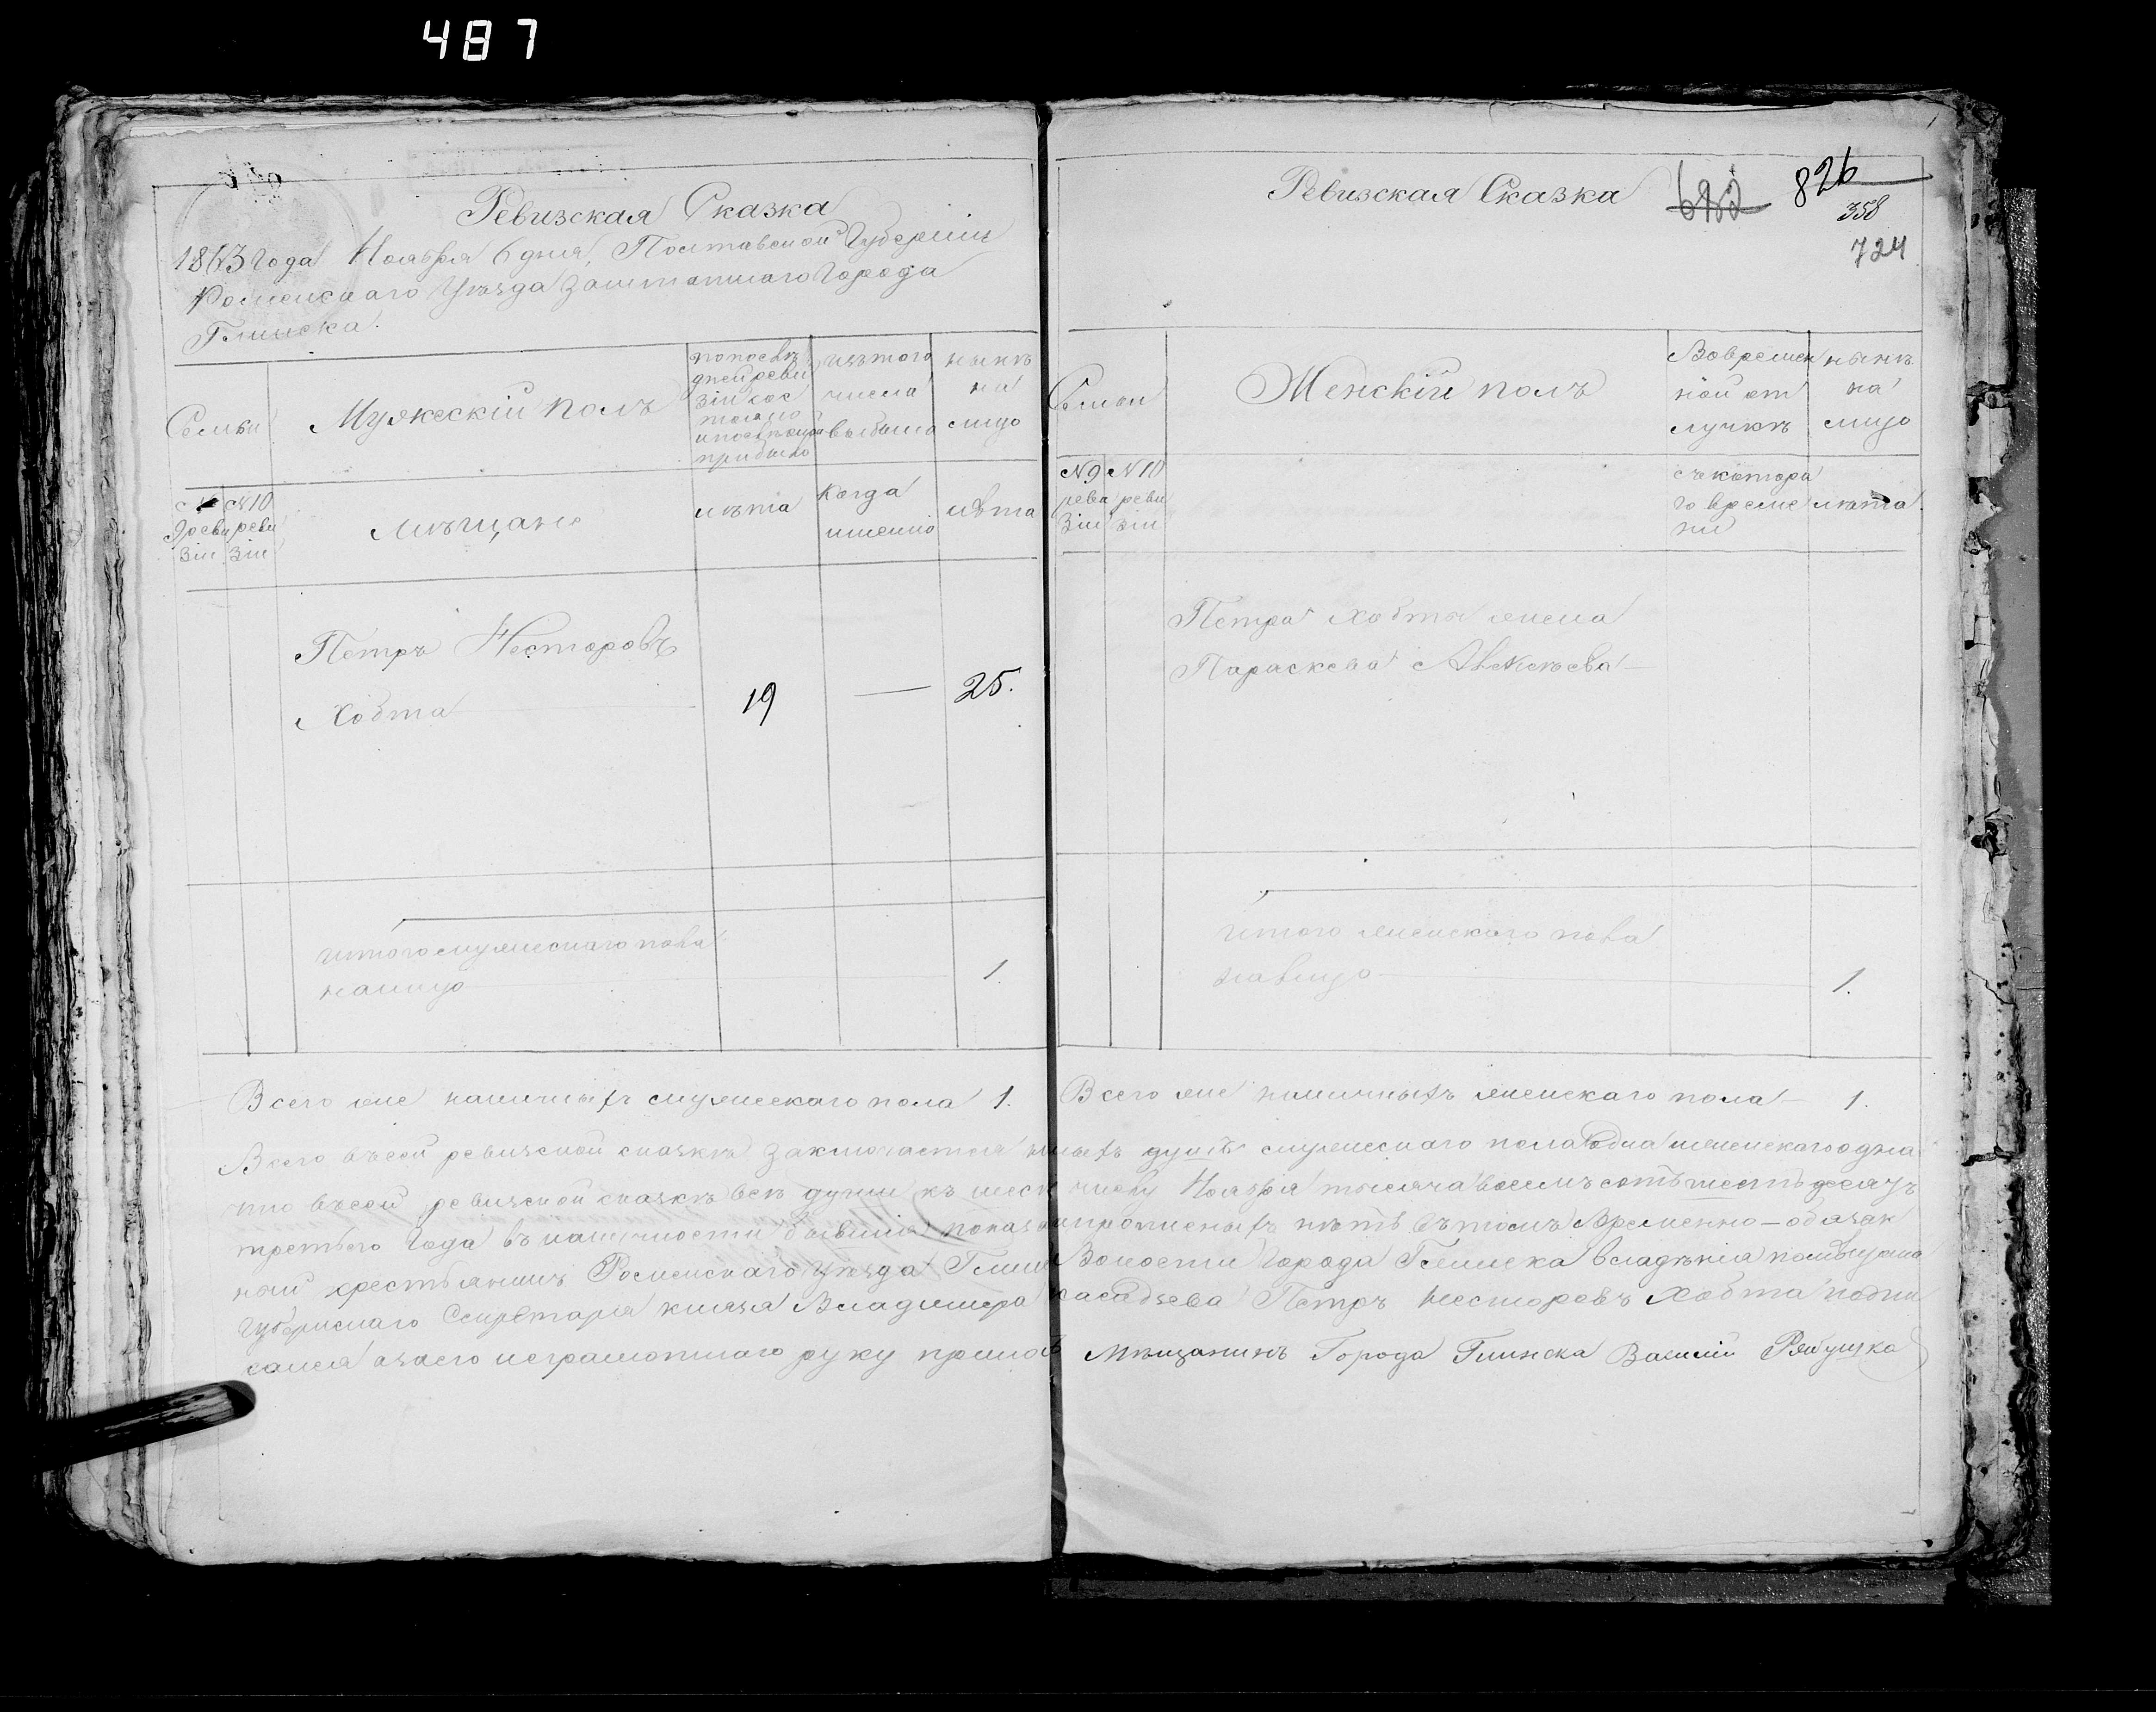 487
Ревизская Сказка
1863 года Ноября 6 дня, Полтавской Губерніи
Роменскаго Уѣзда Заштатнаго Города
Глинска.
Семьи
Мужескій полъ
по послѣ
дней реви
зіи сос
тояло
и послѣ
прибыло
изъ того
числа
выбыло
нынѣ
на
лицо
№ 9 реви зіи
№ 10 реви зіи
Мѣщане
лѣта
когда
именно
лѣта
Петръ Несторовъ
Хобта
19
—
25.
итого мужескаго пола
налицо
1.
Всего же наличныхъ мужескаго пола 1.
Ревизская Сказка
682
826
358
724
Семьи
Женскій полъ
Во времен
ной от
лучкѣ
нынѣ
на
лицо
№ 9 реви зіи
№ 10 реви зіи
съ котора
го време
ни
лѣта.
Петра Хобты жена
Параскева Алексѣева —
итого женскаго пола
налицо
1.
Всего же наличныхъ женскаго пола — 1.
Всего въ сей ревизской сказкѣ заключается душъ мужескаго пола одна женскаго одна
что въ сей ревизской сказкѣ всѣ души къ числу Ноября тысяча восемъ сотъ шестьдесятъ
третьего года въ наличности бывшія показаны прописныхъ нѣтъ въ томъ Временно-обязан
ный крестьянинъ Роменскаго уѣзда Глин Волости города Глинска владѣнія помѣщика
Губернскаго Секретаря князя Владимера Петръ Несторовъ Хобта подпи
сался а за его неграмотнаго руку прилож Мѣщанинъ Города Глинска Василій Рябушка